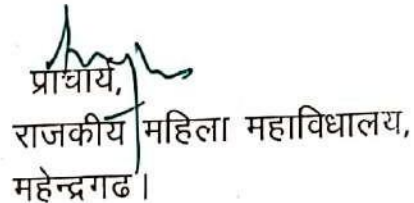 प्राचार्य,
राजकीय महिला महाविधालय,
महेन्द्रगढ।